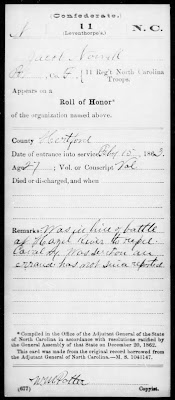 (Confederate.)
N 11 N. C.
(Leventhorpe's.)
Nowell
Pt, Co. F, 11 Reg't North Carolina Troops.
Appears on a
Roll of Honor*
of the organization named above.
County Hertford
Date of entrance into service Feb 10, 1863.
Age 27; Vol. or Conscript Vol.
Died or discharged, and when
Remarks: Was in line of battle
at Hazel River to repel
Cavalry was sent on an
errand has not since reported
* Compiled in the Office of the Adjutant General of the State of North Carolina in accordance with resolutions ratified by the General Assembly of that State on December 20, 1862.
This card was made from the original record borrowed from the Adjutant General of North Carolina.—M. S. 1041147.
Potter
(677) Copyist.